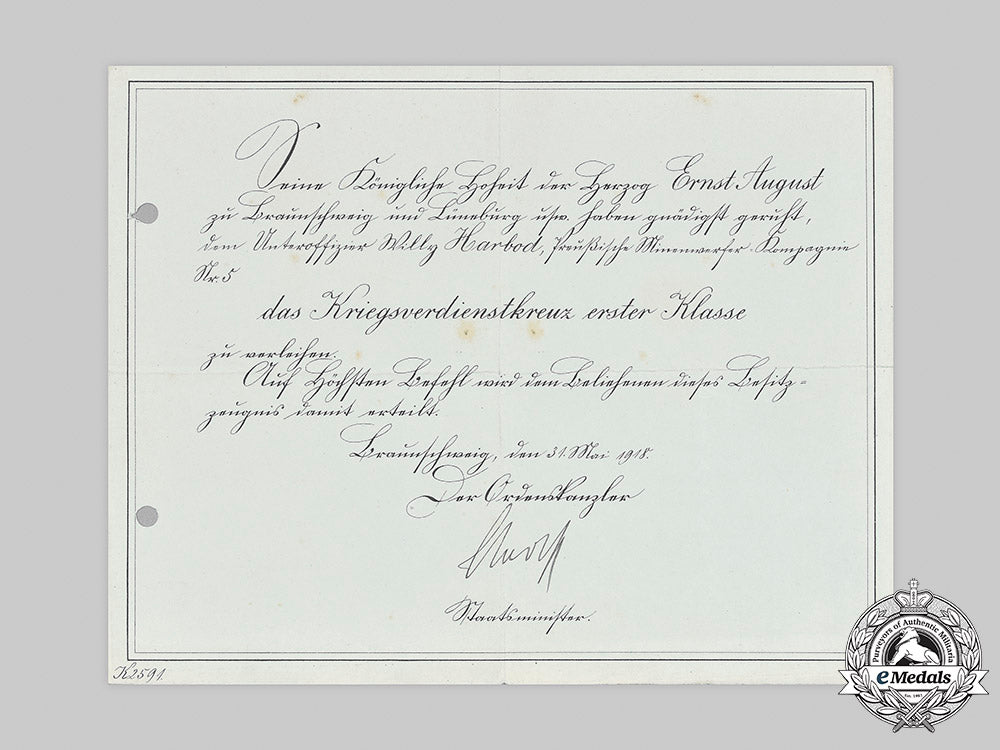 Seine Königliche Hoheit der Herzog Ernst August
zu Braunschweig und Lüneburg usw. haben gnädigst geruht,
dem Unteroffizier Willy Harbod, Preußische Minenwerfer-Kompagnie
Nr. 5
das Kriegsverdienstkreuz erster Klasse
zu verleihen.
Auf Höchsten Befehl wird dem Beliehenen dieses Besitz=
zeugnis damit erteilt.
Braunschweig, den 31. Mai 1918.
Der Ordenskanzler
Staatsminister.
K2591.
Purveyors of Authentic Militaria
eMedals